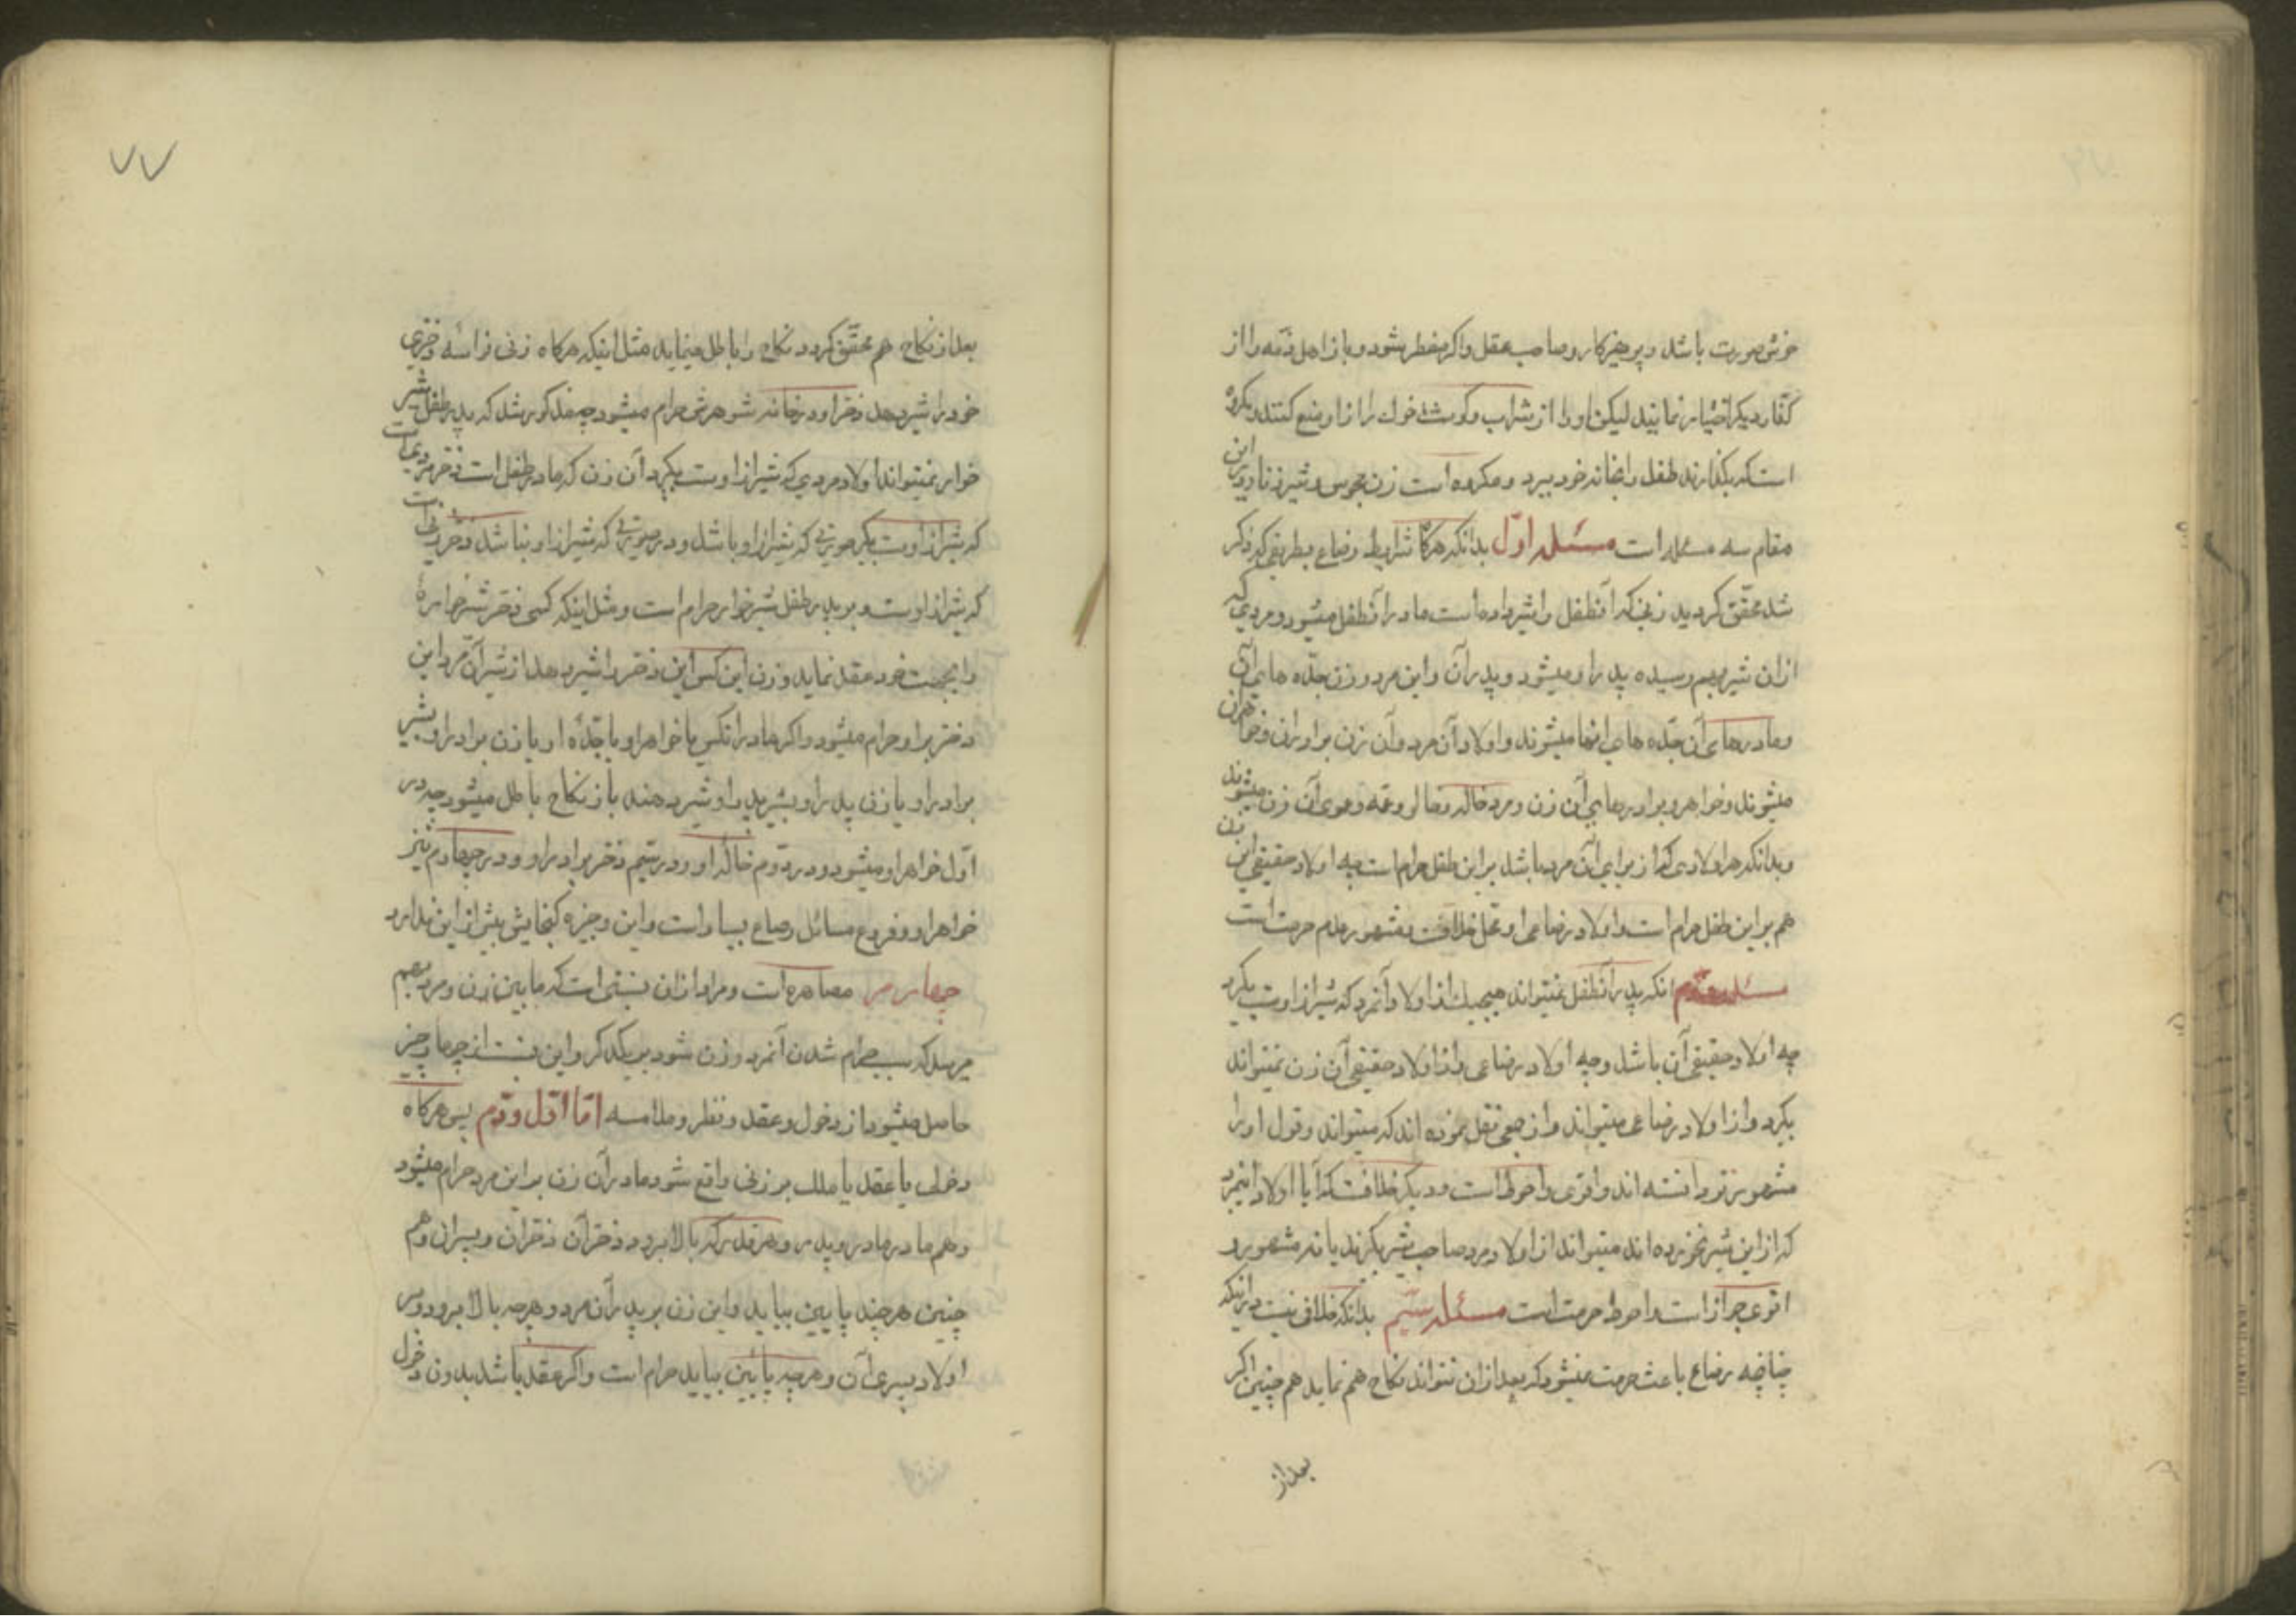 خوش صورت باشد و پرهیزکار و صاحب عقل و اکر مضطر شود و با زا اهل ذمه را از
کفار دیکر اختیار نمایند لیکن او را از شراب و کوشت خوک را از او منع کنند و مکروه
است که بکذارند طفل را بخانه خود ببرد و مکروه است زن مجوس و شیر زنا و در این
مقام سه مسئله است مسئله اوّل بدانکه هرکاه شرایط رضاع بطریقی که ذکر
شد محقّق کردید زنی که آنطفل را شیر داده است مادر آنطفل میشود و مردی که
از ان شیر بهم رسیده پدر او میشود و پدر آن و این مرد و زن جدّه های آن
و مادرهای آن جدّه های انها میشوند و اولاد آن مرد و آن زن برادران و خواهران
میشوند و خواهر و برادرهای آن زن و مرد خاله و خالو و عمّه و عموی آن زن میشوند
و بدانکه هر اولادی که از برای آن مرد باشد بر این طفل حرام است چه اولاد حقیقی این زن
هم بر این طفل حرام است و اولاد رضاعی او محل خلافت و مشهور عدم حرمت است
مسئله دوّم انکه پدر آنطفل نمیتواند هیچیک از اولاد آنمرد که شیر از اوست بکیرد
چه اولاد حقیقی آن باشد و چه اولاد رضاعی و از اولاد حقیقی آن زن نمیتواند
بکیرد و از اولاد رضاعی میتواند و از بعضی نقل نموده اند که میتواند و قول اول را
مشهورتر دانسته اند و اقوی و احوط است و دیکر خلافست که آیا اولاد اینمرد
که از این شیر نخورده اند میتواند از اولاد مرد صاحب شیر بکیرند یا نه مشهور و
اقوی جواز است و احوط حرمت است مسئله سیّم بدانکه خلافی نیست در اینکه
چنانچه رضاع باعث حرمت میشود که بعد از ان نتواند نکاح هم نماید هم چنین اکر
بعد از
۷۷
بعد از نکاح هم محقّق کردد نکاح را باطل مینماید مثل اینکه هرکاه زنی نواسه دختری
خود را شیر دهد دختر او در خانه شوهرش حرام میشود چه مذکور شد که پدر طفل شیر
خوار نمیتواند اولاد مردی که شیر از اوست بکیرد آن زن که مادر طفل است دختر مردی است
که شیر از اوست بکیر صورتی که شیر از او باشد و در صورتی که شیر از او نباشد دختر زنی است
که شیر از اوست و بر پدر طفل شیرخوار حرام است و مثل اینکه کسی دختر شیرخواره
را بجهت خود عقد نماید و زن این کس این دختر را شیر دهد از شیر آن مرد این
دختر بر او حرام میشود و اکر مادر انکس یا خواهر او یا جدّه او یا زن برادر او بشیر
برادر او یا زن پدر او بشیر پدر او شیر دهند باز نکاح باطل میشود چه در
اوّل خواهر او میشود و در دوّم خاله او و در سیّم دختر برادر او و در چهارم نیز
خواهر او و فروع مسائل رضاع بسیار است و این وجیزه کنجایش بیش از این ندارد
چهارم مصاهره است و مراد از ان نسبتی است که ما بین زن و مرد بهم
میرسد که سبب حرام شدن آنمرد و زن شود بر یکدکر و این نسبت از چهار چیز
حاصل میشود از دخول و عقد و نظر و ملامسه امّا اوّل و دوّم پس هرکاه
دخولی یا عقد یا ملک بر زنی واقع شود مادر آن زن بر این مرد حرام میشود
و هم مادر مادر و پدر و هر قدر که بالا برود و دختر آن دختران و پسران و هم
چنین هر چند پایین بیاید و این زن بر پدر آن مرد و هرچه بالا برود و بر
اولاد پسری آن و هرچه پایین بیاید حرام است و اکر عقد باشد بدون دخول